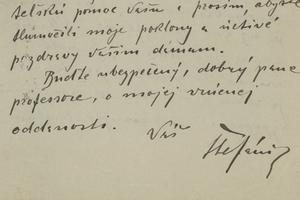 pomoc Vašu a prosím, abyste
tlumočili moje poklony a úctivé
pozdravy Vašim dámam.
Buďte ubezpečený, dobrý pane
professore, o mojej vrúcnej
oddanosti. Váš
Štefánik